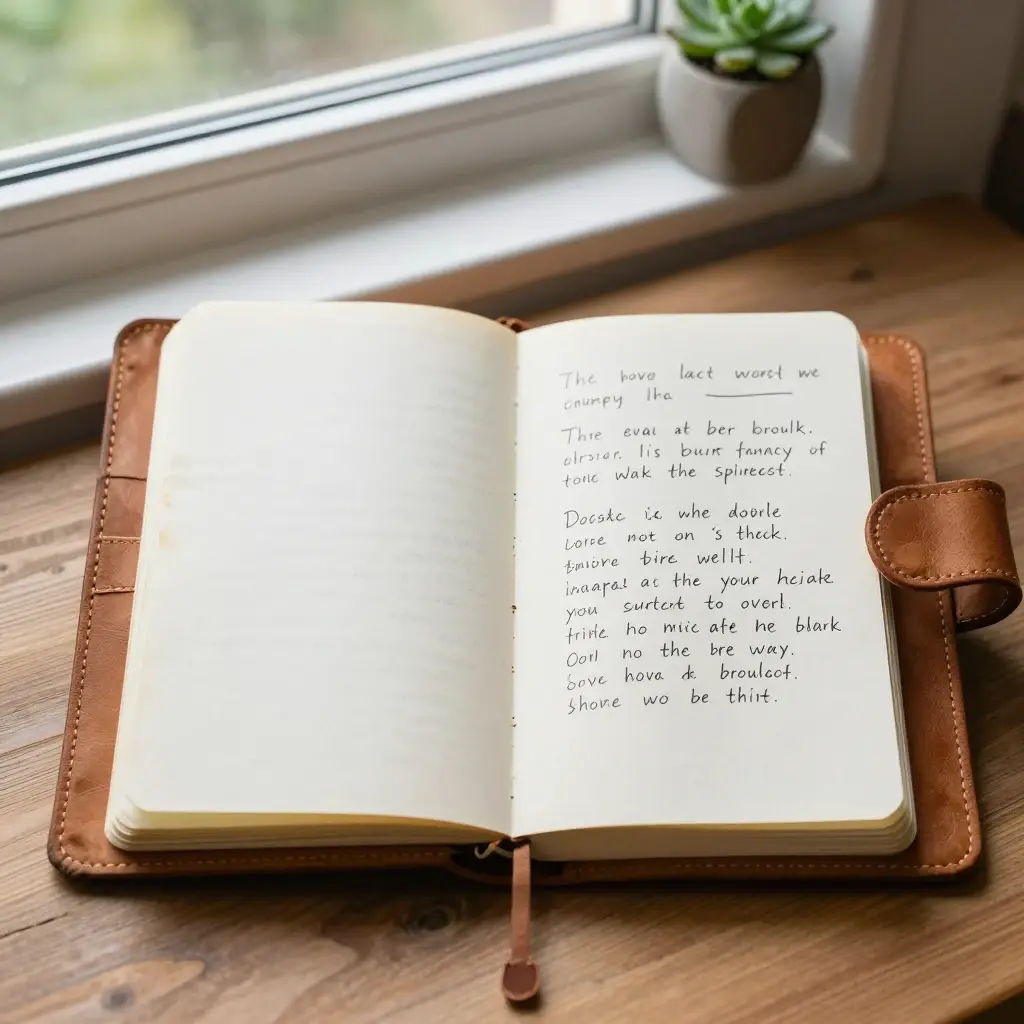 The hove lact worst we
cnumpy lha
Thre eval at ber broulk.
lis bunr fannacy of
tonc wak the splreest.
Docske ic whe doorle
Lorse not on 's theck.
tire wellt.
at the your heiale
you surtent to overl.
ho mic afe he blark
Oorl no the bre way.
Sove hova broulcot.
Shove wo be thirt.